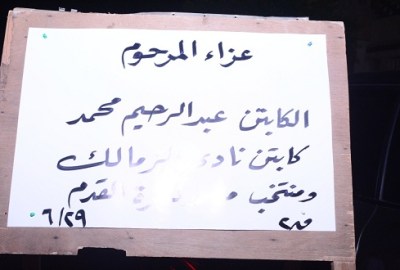 عزاء المرحوم
الكابتن عبدالرحيم محمد
كابتن نادى الزمالك
ومنتخب القدم
٦/٢٩